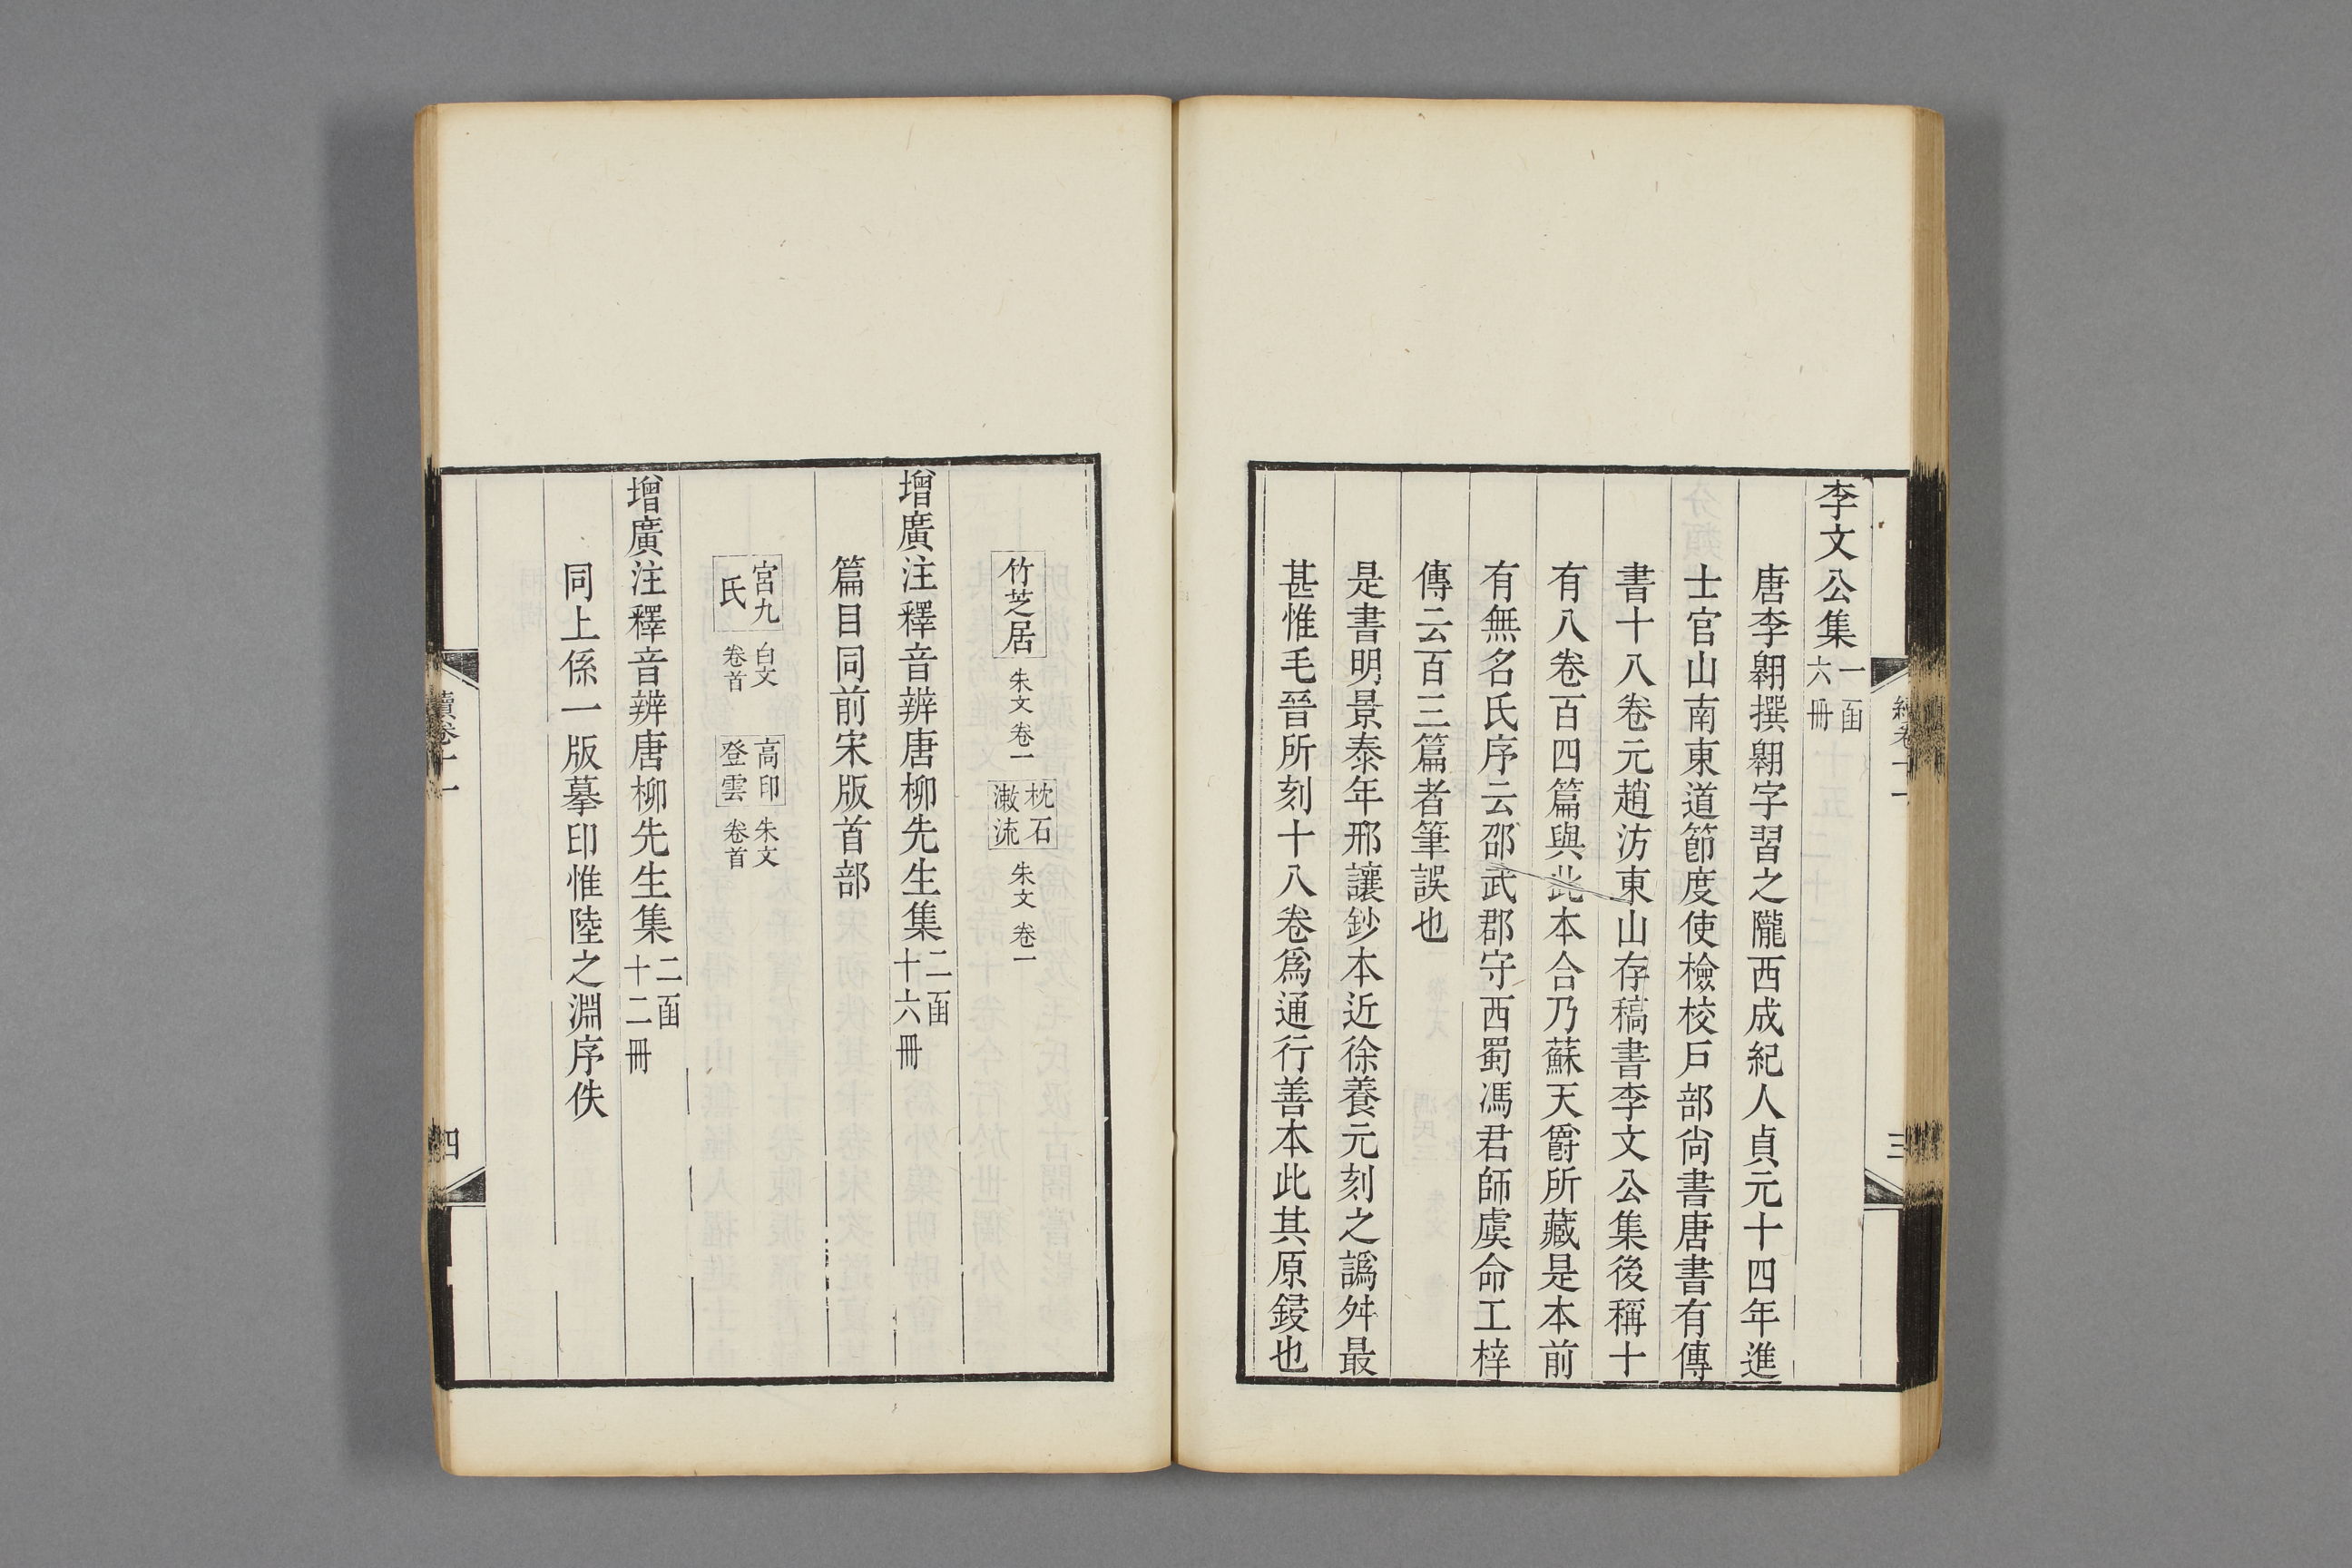 李文公集一函六冊
唐李翱撰翱字習之隴西成紀人貞元十四年進
士官山南東道節度使檢校戶部尙書唐書有傳
書十八卷元趙汸東山存稿書李文公集後稱十
有八卷百四篇與此本合乃蘇天爵所藏是本前
有無名氏序云邵武郡守西蜀馮君師虞命工梓
傳云百三篇者筆誤也
是書明景泰年邢讓鈔本近徐養元刻之譌舛最
甚惟毛晉所刻十八卷爲通行善本此其原鋟也
三
竹芝居 朱文 卷一 枕石漱流 朱文 卷一
增廣注釋音辨唐柳先生集二函十六冊
篇目同前宋版首部
宮九氏 白文卷首 高印登雲 朱文卷首
增廣注釋音辨唐柳先生集二函十二冊
同上係一版摹印惟陸之淵序佚
續卷十一
四